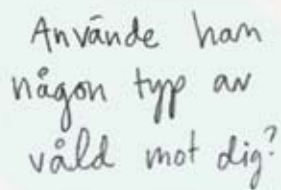 Använde han
någon typ av
våld mot dig?